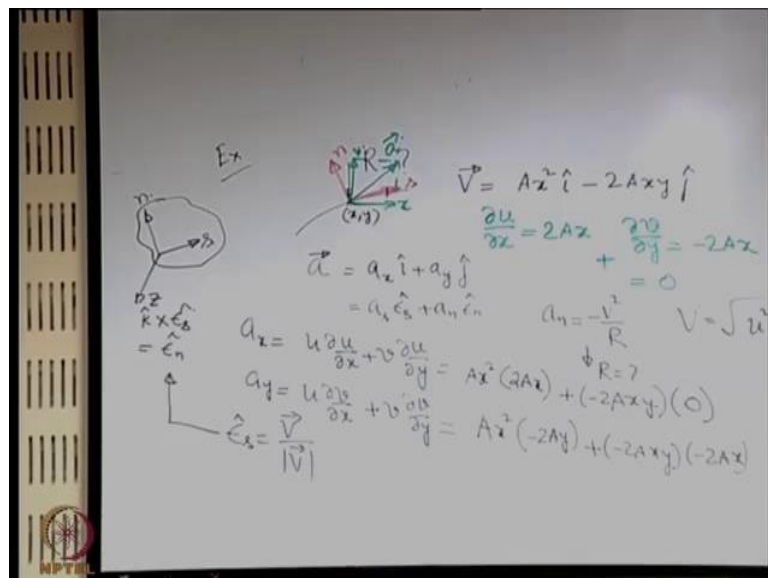 Ex
n
s
z
k̂ × ε̂s
= ε̂n
n
R = ?
s
x
(x,y)
V⃗ = Ax² î − 2Axy ĵ
∂u/∂x = 2Ax + ∂v/∂y = −2Ax
= 0
a⃗ = ax î + ay ĵ
= as ε̂s + an ε̂n
an = −V²/R
V = √u²
↓ R = ?
ax = u ∂u/∂x + v ∂u/∂y = Ax² (2Ax) + (−2Axy)(0)
ay = u ∂v/∂x + v ∂v/∂y = Ax² (−2Ay) + (−2Axy)(−2Ax)
ε̂s = V⃗/|V⃗|
NPTEL